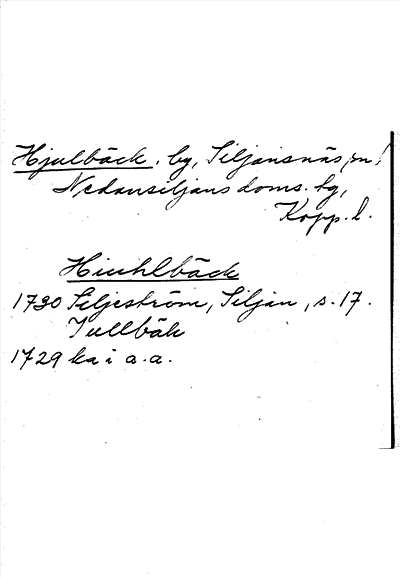 Hjulbäck, by, Siljansnäs sn,
Nedansiljans doms. hg,
Kopp. l.
Hiuhlbäck
1730 Siljeström, Siljan, s. 17.
Jullbäk
1729 ka i a.a.